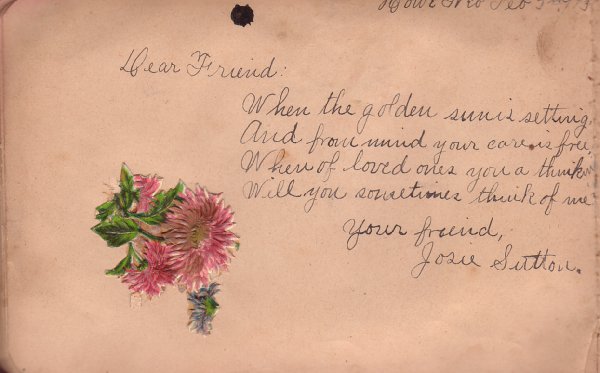 Dear Friend:
When the golden sun is setting
And from mind your care is free
When of loved ones you a thinkin
Will you sometimes think of me
Your friend,
Josie Sutton.